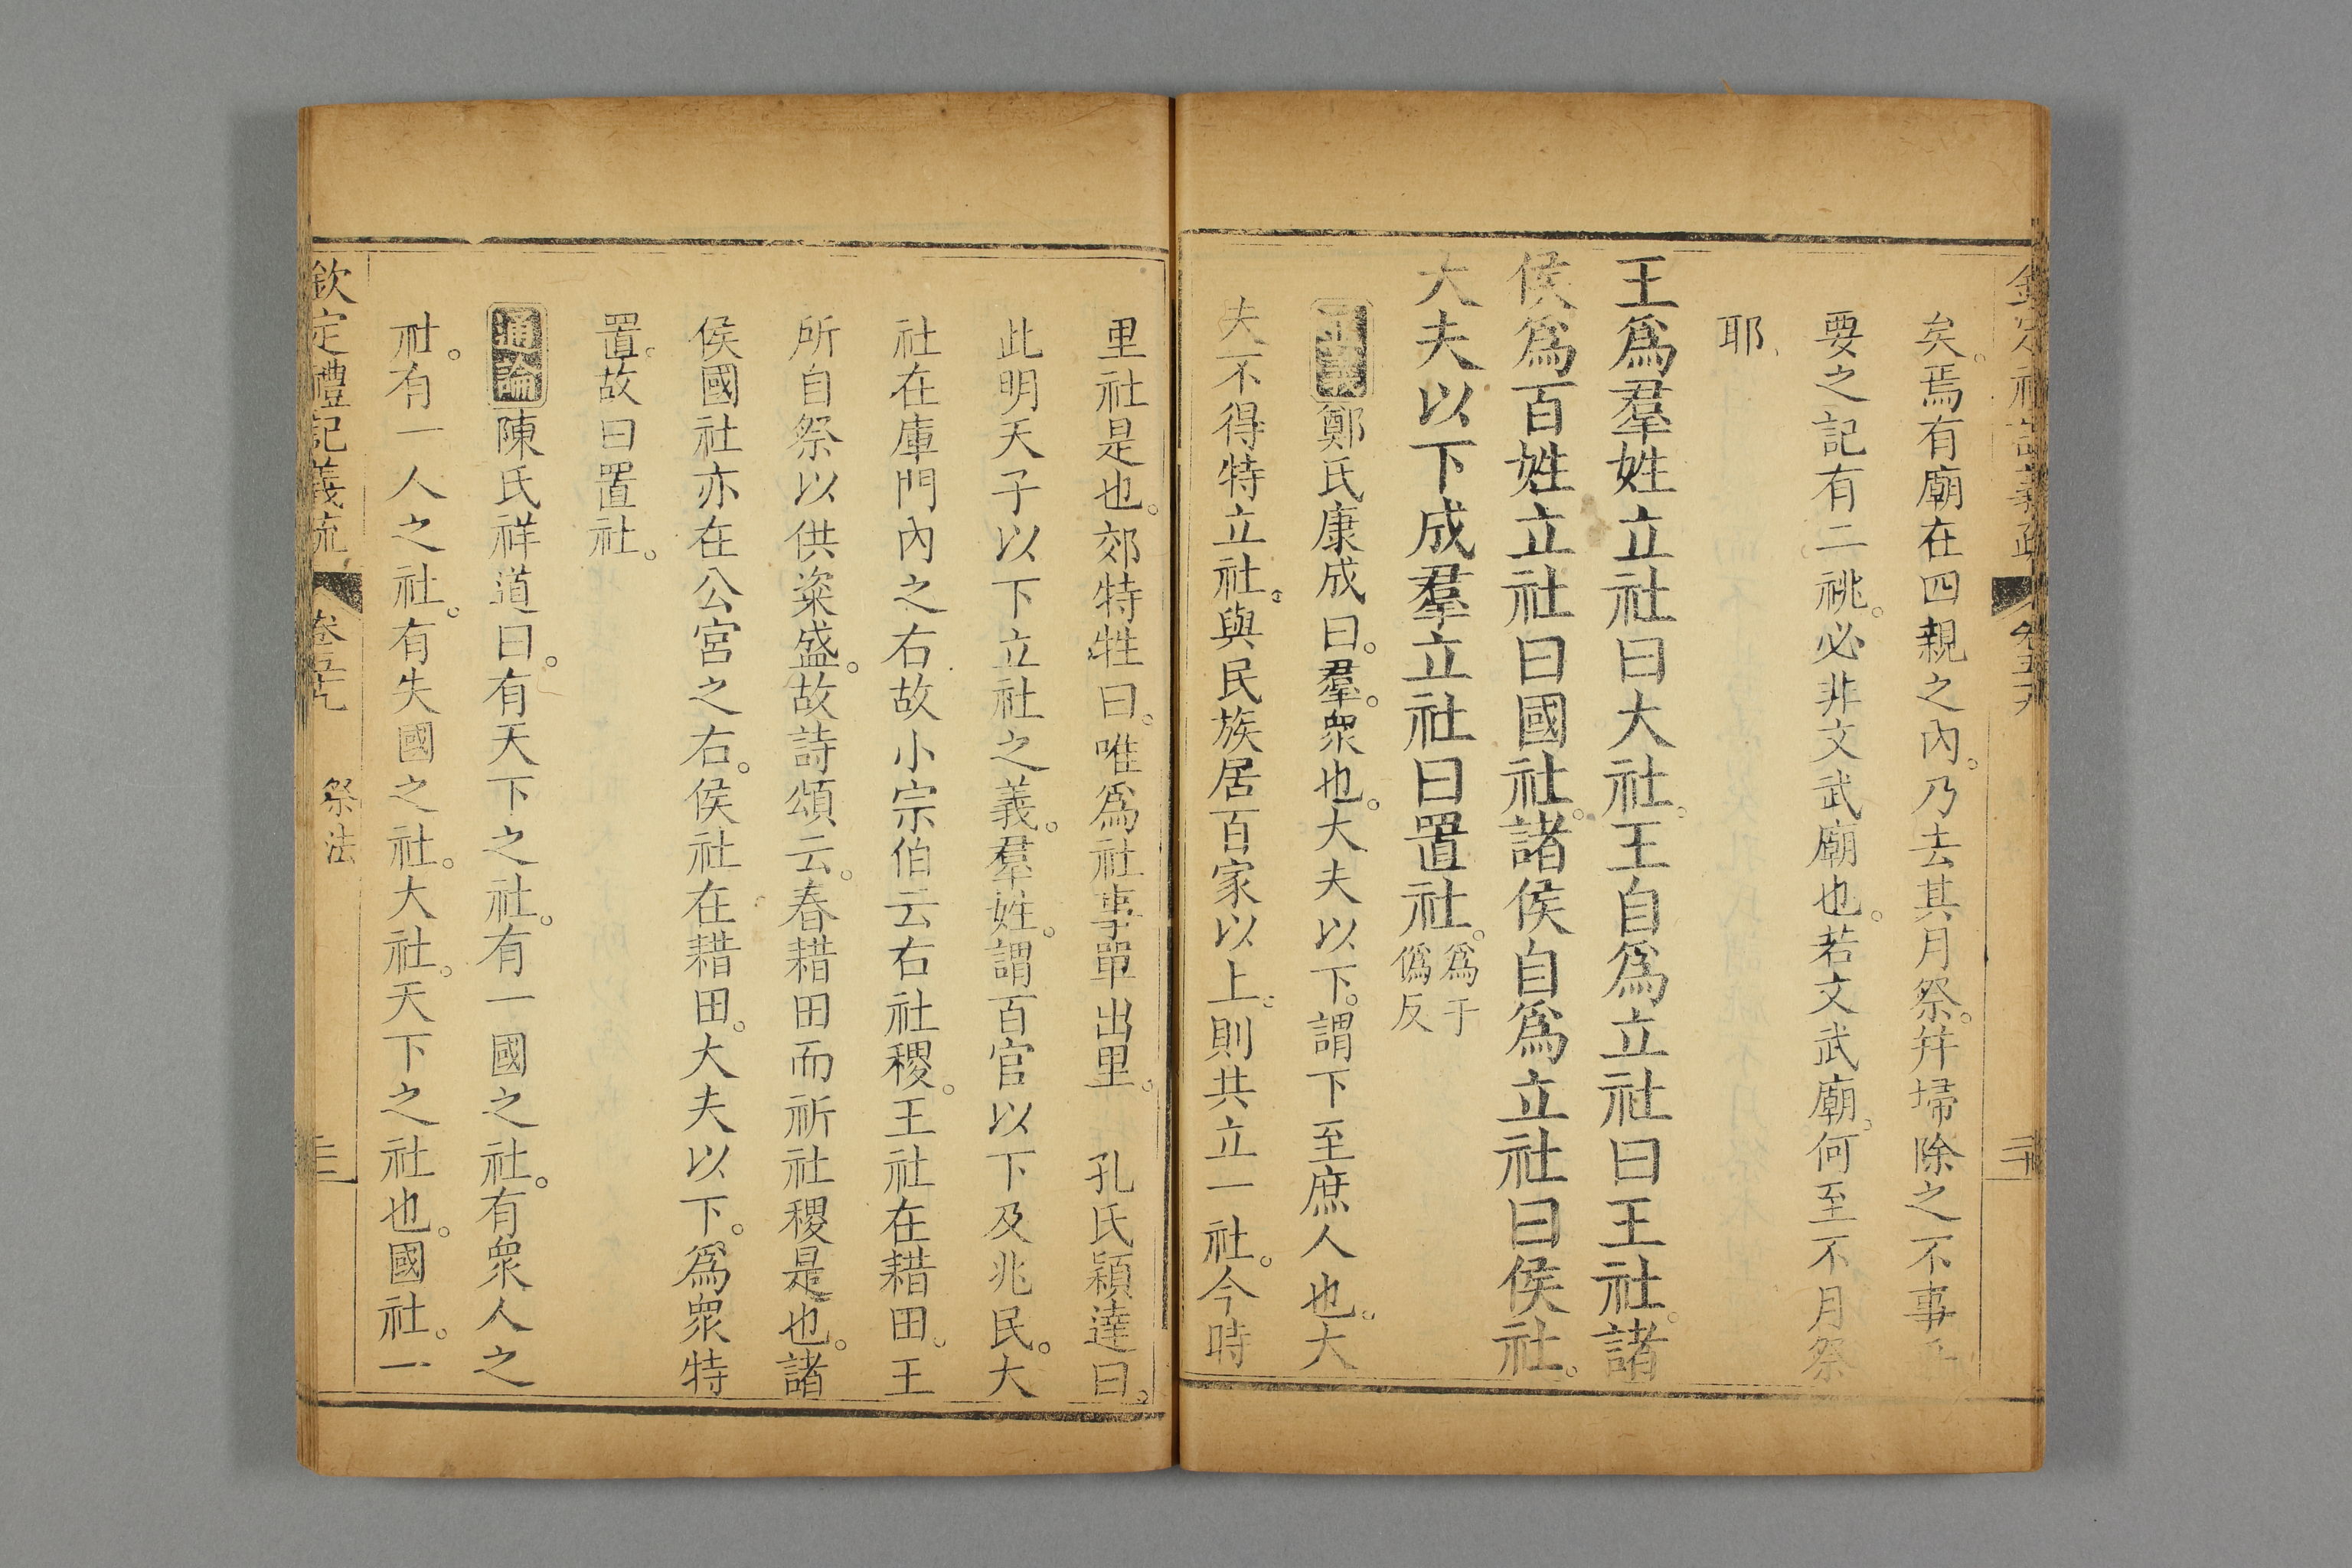 矣。焉有廟在四親之內。乃去其月祭。幷埽除之不事
要之記有二祧。必非文武廟也。若文武廟。何至不月祭
耶
王爲羣姓立社曰大社。王自爲立社曰王社。諸
侯爲百姓立社曰國社。諸侯自爲立社曰侯社。
大夫以下成羣立社曰置社。爲于僞反
鄭氏康成曰。羣。衆也。大夫以下。謂下至庶人也。大
夫不得特立社。與民族居百家以上。則共立一社。今時
里社是也。郊特牲曰。唯爲社事單出里。 孔氏穎達曰。
此明天子以下立社之義。羣姓。謂百官以下及兆民。大
社在庫門內之右故小宗伯云右社稷。王社在耤田。王
所自祭以供粢盛。故詩頌云。春耤田而祈社稷是也。諸
侯國社亦在公宮之右。侯社在耤田。大夫以下。爲衆特
置。故曰置社。
通論陳氏祥道曰。有天下之社。有一國之社。有衆人之
社。有一人之社。有失國之社。大社。天下之社也。國社。一
欽定禮記義疏 卷五十九 祭法